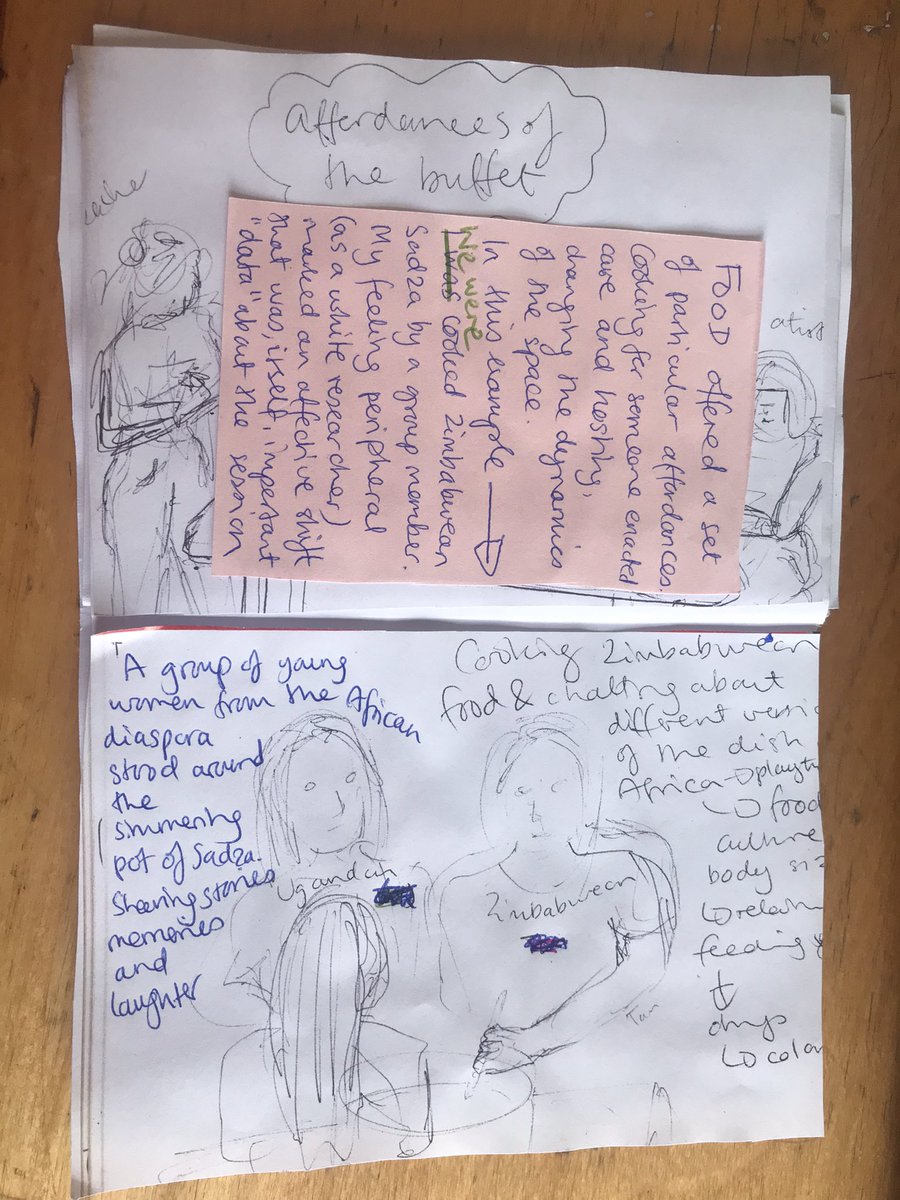 affordances of
the buffet
FOOD offered a set
of particular affordances.
Cooking for someone enacted
care and hosility,
changing the dynamics
of the space.
In this example
We were
I was cooked Zimbabwean
Sadza by a group member.
My feeling peripheral
(as a white researcher)
marked an affective shift
that was, itself, important
"data" about the session
A group of young
women from the African
diaspora
stood around
the
simmering
pot of Sadza.
Sharing stories
memories
and
laughter
Cooking Zimbabwean
food & chatting about
different versi
of the dish
Africa
food
culture
body si
feeding
drugs
Ugandan
Zimbabwean